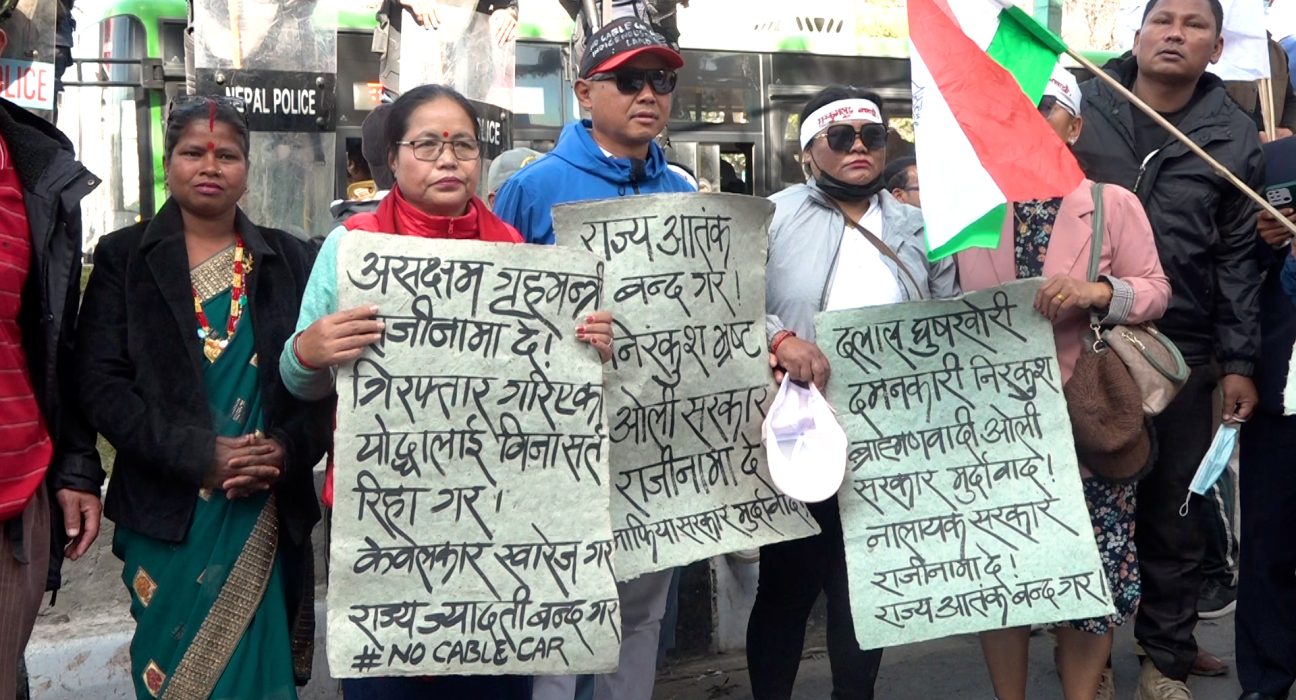 POLICE
NEPAL POLICE
POLICE
NO CABLE CAR
असक्षम गृहमन्त्री
राजीनामा दे!
गिरफ्तार गरिएका
योद्धालाई विनासर्त
रिहा गर।
केवलकार खारेज गर
राज्य ज्यादती बन्द गर
# NO CABLE CAR
राज्य आतंक
बन्द गर।
निरंकुश भ्रष्ट
ओली सरकार
राजीनामा दे
माफिया सरकार मुर्दावाद!
दलाल घुषखोरी
दमनकारी निरंकुश
ब्राह्मणवादी ओली
सरकार मुर्दावाद!
नालायक सरकार
राजीनामा दे!
राज्य आतंक बन्द गर!